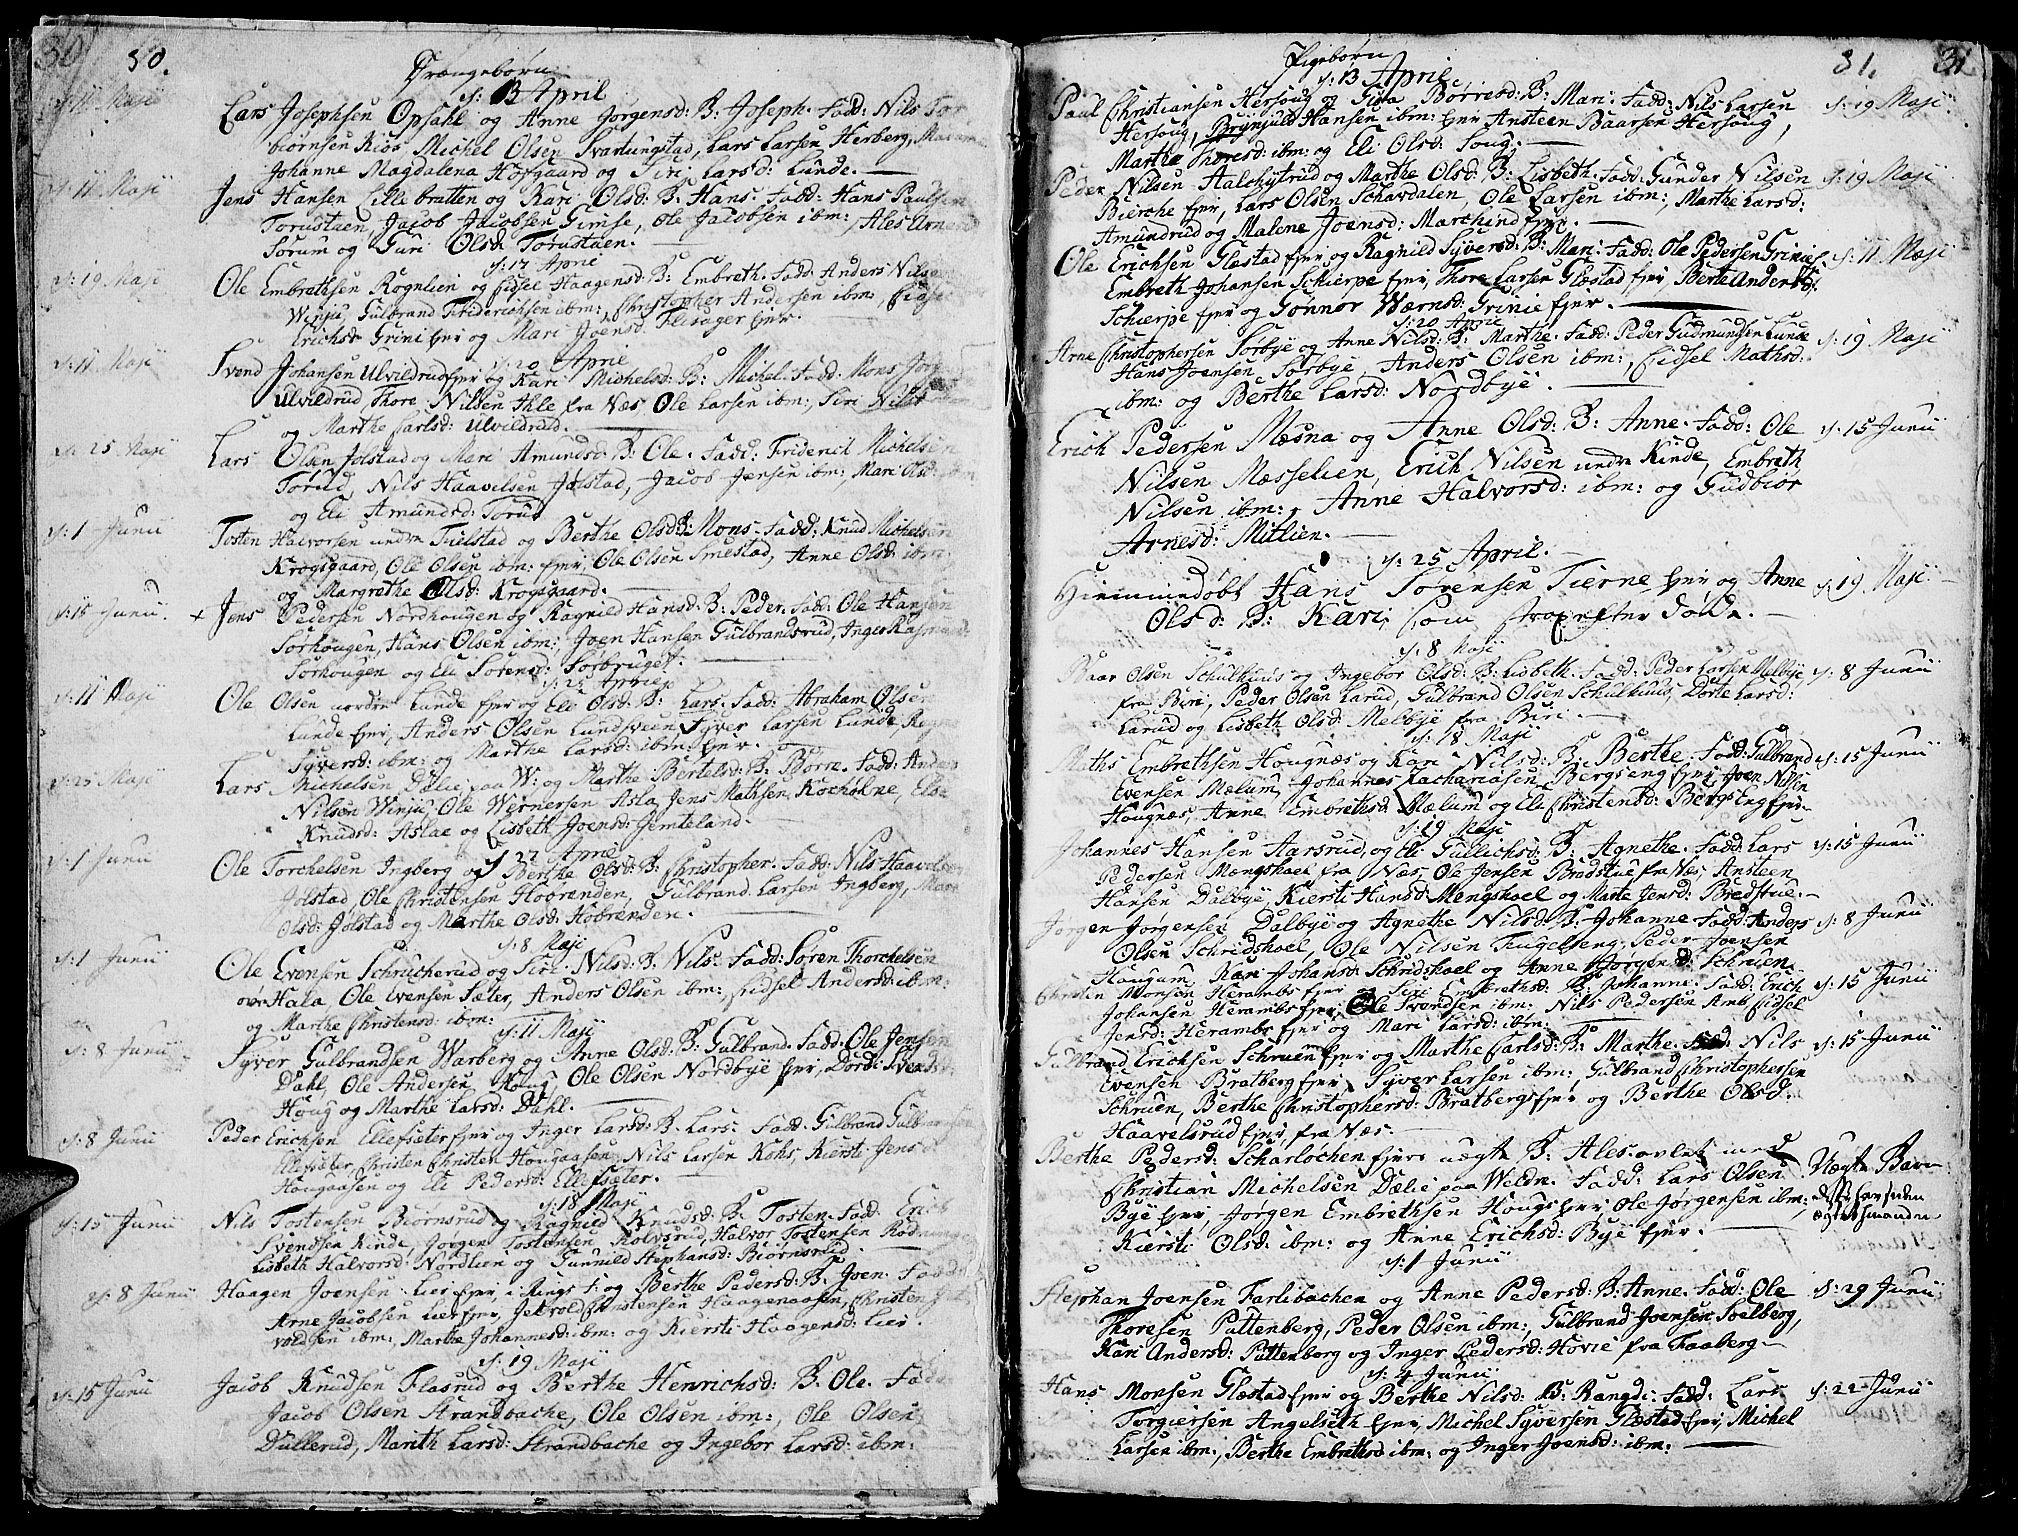 30.
Drængebørn
d: 13 April
d: 11 Maji
Lars Josephsen Opsahl og Anne Jørgensd: B: Joseph. Fadd: Nils Tor
biørnsen Kios Michel Olsen Svartungstad, Lars Larsen Herberg, Madam
Johanne Magdalena Hofgaard og Siri Larsd: Lunde.
d: 11 Maji
Jens Hansen Lillebratten og Kari Olsd: B: Hans. Fadd: Hans Paulsen
Torustuen, Jacob Jacobsen Gimse, Ole Jacobsen ibm: Ales Arnesd
Sorum og Guri Olsd: Torustuen.
d: 17 April
d: 19 Maji
Ole Embrethsen Rognlien og Eidsel Haagensd: B: Embreth. Fadd: Anders Nilsen
Winju, Gulbrand Friderichsen ibm: Christopher Andersen ibm:
Erichsd Grini Ejer og Mari Joensd Flisager Ejer.
d: 20 April
d: 11 Maji
Svend Johansen Ulvildrud Ejer og Kari Michelsd: B: Michel. Fadd: Mons
Ulvildrud, Thore Nilsen Ihle fra Næs, Ole Larsen ibm:, Siri Nilsd
og Marthe Carlsd: Ulvildrud.
d: 25 Maji
Lars Olsen Jolstad og Mari Amundsd B: Ole. Fadd: Friderich Michelsen
Torud, Nils Haavelsen Jølstad, Jacob Jensen ibm: Mari Olsd
og Eli Amundsd: Torud
d: 1 Junii
Tosten Halvorsen undr Tielstad og Berthe Olsd: B: Mons. Fadd: Knud Michelsen
Krogsgaard, Ole Olsen ibm: Ejer, Ole Olsen Smestad, Anne Olsd: ibm
og Margrethe Olsd: Krogsgaard.
d: 15 Junii.
+ Jens Pedersen Nordhougen og Ragnild Hansd: B: Peder. Fadd: Ole Hansen
Sorhougen, Hans Olsen ibm: Joen Hansen Gulbrandsrud, Inger
Sorhougen og Eli Sorensd: Sørbruget.
d: 25 April
d: 11 Maji
Ole Olsen nordre Lunde Ejer og Eli Olsd: B: Lars. Fadd: Abraham Olsen
Lunde Ejer, Anders Olsen Lundsveen, Syver Larsen Lunde,
Syversd: ibm: og Marthe Larsd: ibm: Ejer.
d: 25 Maji
Lars Michelsen Dalie paa W: og Marthe Bertelsd: B: Børre. Fadd: Anders
Nilsen Winju, Ole Wernersen Asla, Jens Mathsen Kocholne,
Knudsd: Aslae og Lisbeth Joensd: Jemteland.
d: 27 April
d: 1 Junii
Ole Torchelsen Ingberg og Berthe Olsd: B: Christopher. Fadd: Nils Haavelsen
Jolstad, Ole Christensen Hoorenden, Gulbrand Larsen Ingberg,
Olsd: Jolstad og Marthe Olsd: Hobrenden.
d: 8 Maji
d: 1 Junii
Ole Evensen Schrucherud og Siri Nilsd: B: Nils. Fadd: Søren Thorchelsen
Hala Ole Evensen Sæter, Anders Olsen ibm:, Eidsel Andersd: ibm:
og Marthe Christensd: ibm:
d: 11 Maji
d: 8 Junii
Syver Gulbrandsen Warberg og Anne Olsd: B: Gulbrand. Fadd: Ole Jensen
Dahl, Ole Andersen Houg, Ole Olsen Nordbye Ejer, Dordi
Houg og Marthe Larsd: Dahl.
d: 8 Junii
Peder Erichsen Ellefsæter Ejer og Inger Larsd: B: Lars. Fadd: Gulbrand
Ellefsæter, Christen Christen Hougaasen, Nils Larsen Kohs, Kiersti Jensd
Hougaasen og Eli Pedersd: Ellefsæter.
d: 18 Maji
d: 15 Junii
Nils Tostensen Biornsrud og Ragnild Knudsd: B: Tosten. Fadd: Erich
Svendsen Kinde, Jorgen Tostensen Kolvsrud, Halvor Tostensen
Lisbeth Halvorsd: Nordlien og Gunnild Stephansd: Biornsrud.
d: 8 Junii
Haagen Joensen Lier Ejer i Rings F: og Berthe Pedersd: B: Joen. Fadd:
Arne Jacobsen Lier Ejer, Christensen Haagenaasen, Christen
ibm: Marthe Johannesd: ibm: og Kiersti Haagensd: Lier.
d: 19 Maji
d: 15 Junii
Jacob Knudsen Flasrud og Berthe Henrichsd: B: Ole. Fadd:
Jacob Olsen Strandbache, Ole Olsen ibm:, Ole Olsen
Dullerud, Marith Larsd: Strandbache og Ingebor Larsd: ibm:
Pigebørn
31.
d: 13 April.
Paul Christiansen Hersoug og Siva Børresd: B: Mari. Fadd: Nils Larsen d: 19 Maji
Hersoug, Brynjuld Hansen ibm: Ejer Ansteen Baarsen Hersoug,
Marthe Thoresd: ibm: og Eli Olsd: Soug.
Peder Nilsen og Marthe Olsd: B: Lisbeth. Fadd: Gunder Nilsen d: 19 Maji
Bierche Ejer, Lars Olsen Schavdalen, Ole Larsen ibm:, Marthe Larsd:
Amundrud og Malene Joensd: Marchind Ejer.
Ole Erichsen Glæstad Ejer og Ragnild Syversd: B: Mari. Fadd: Ole Pedersen Grinie d: 11 Maji
Embreth Johansen Schierpe Ejer, Thore Larsen Glæstad Ejer, Berte Andersd:
Schierpe Ejer og Gønnor Wærnsd: Grinie Ejer.
d: 20 April
Arne Christophersen Sørbye og Anne Nilsd: B: Marthe. Fadd: Peder Gudmundsen Lunde d: 19 Maji
Hans Joensen Sørbye, Anders Olsen ibm:, Eidsel Mathsd:
ibm: og Berthe Larsd: Nordbye.
Erich Pedersen Mæsna og Anne Olsd: B: Anne. Fadd: Ole d: 15 Junii
Nilsen Mæsselien, Erich Nilsen undr Kinde, Embreth
Nilsen ibm:, Anne Halvorsd: ibm: og Gudbior
Arnesd: Mitlien.
d: 25 April.
Hiemmedøbt Hans Sørensen Tierne Ejer og Anne d: 19 Maji
Olsd: B: Kari, som strax efter døde.
d: 8 Maji
Baar Olsen Schulhuus og Ingebor Olsd: B: Lisbeth. Fadd: Peder Larsen Melbye d: 8 Junii
fra Biri, Peder Olsen Larud, Gulbrand Olsen Schulhuus, Dorthe Larsd:
Larud og Lisbeth Olsd: Melbye fra Biri.
d: 18 Maji
Maths Embrethsen Hougnæs og Kari Nilsd: B: Berthe. Fadd: Gulbrand d: 15 Junii
Evensen Mælum, Johannes Zachariasen Bergseng Ejer, Joen Nilsen
Hougnæs, Anne Embrethsd: Mælum og Eli Christensd: Bergs Eng Ejer.
d: 19 Maji
Johannes Hansen Aarsrud, og Eli Gullichsd: B: Agnethe. Fadd: Lars d: 15 Junii
Pedersen Mengshoel fra Næs, Ole Jensen Bredstue fra Næs, Ansteen
Hansen Dalbye, Kiersti Hansd: Mengshoel og Marte Jensd: Bredstue.
Jørgen Jørgensen Dalbye og Agnethe Nilsd: B: Johanne. Fadd: Anders d: 8 Junii
Olsen Schridshoel, Ole Nilsen Tingelseng, Peder Joensen
Hougum, Kari Johansd: Schridshoel og Anne Jorgensd: Schruen.
Christen Monsen Herambs Ejer og Siri Embrethsd: B: Johanne. Fadd: Erich d: 15 Junii
Johansen Herambs Ejer, Ole Svendsen ibm: Nils Pedersen Amb Eidsel
Jensd: Herambs Ejer og Mari Larsd: ibm:
Gulbrand Erichsen Schruen Ejer og Marthe Carlsd: B: Marthe. Fadd: Nils d: 15 Junii
Evensen Bratberg Ejer, Syver Larsen ibm:, Gulbrand Christophersen
Schruen, Berthe Christophersd: Bratbergs Ejer og Berthe Olsd:
Haavelsrud Ejer, fra Næs.
Berthe Pedersd: Scharlochen Ejer uægte B: Ales avlet med Uægte Barn
Christian Michelsen Dælie paa Weldn. Fadd: Lars Olsen
Bye Ejer, Jorgen Embrethsen Hougs Ejer, Ole Jørgensen ibm:,
Kiersti Olsd: ibm: og Anne Erichsd: Bye Ejer.
d: 1 Junii
Stephan Joensen Farlibachen og Anne Pedersd: B: Anne. Fadd: Ole d: 29 Junii
Thoresen Puttenberg, Peder Olsen ibm:, Gulbrand Joensen Soelberg,
Kari Andersd: Puttenberg og Inger Pedersd: Hovie fra Faaberg
d: 4 Junii
Hans Monsen Glæstad Ejer og Berthe Nilsd: B: Rangdi. Fadd: Lars d: 22 Junii
Torgiersen Angelseth Ejer, Michel Syversen Glæstad Ejer, Michel
Larsen ibm:, Berthe Embrethsd ibm: og Inger Joensd: ibm: